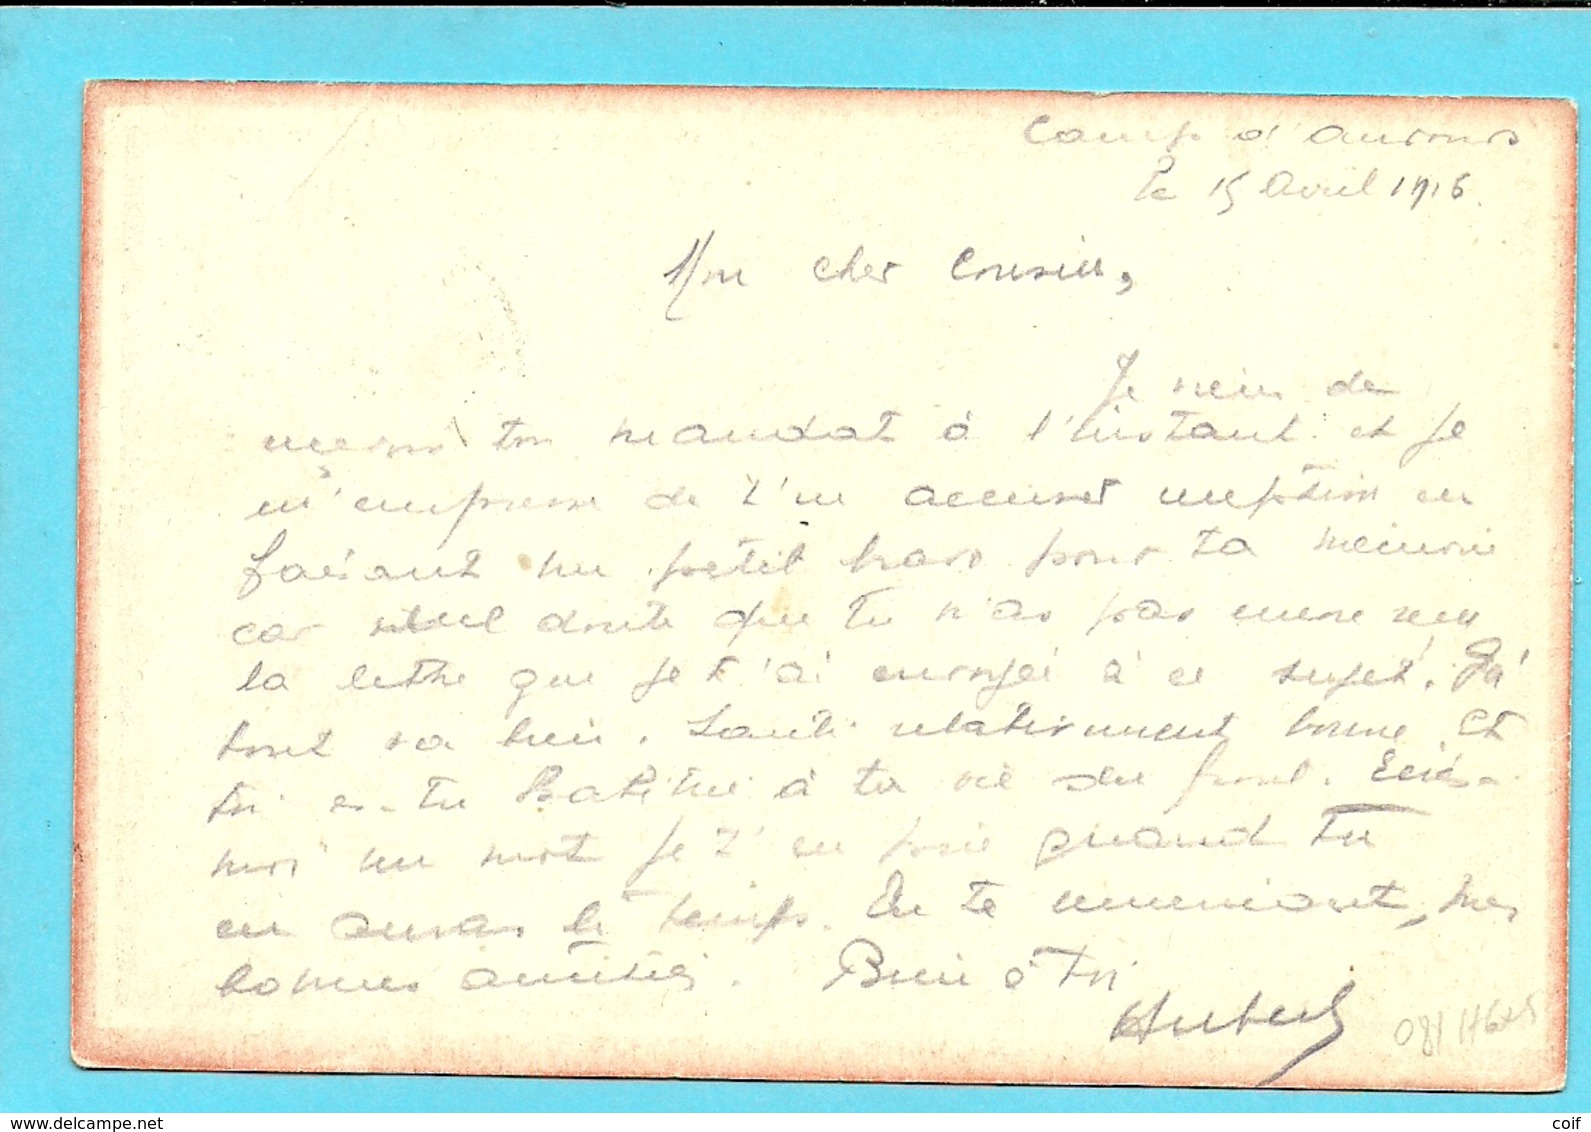 Camp d'Auvours
le 15 Avril 1916.
Mon cher Cousin,
Je viens de
recevoir ton mandat à l'instant et je
m'empresse de t'en accuser réception en
faisant un petit bravo pour ta mémoire
car nul doute que tu n'as pas encore reçu
la lettre que je t'ai envoyée à ce sujet. Ici
tout va bien. Santé relativement bonne. Et
toi es-tu habitué à ta vie du front. Ecris-
moi un mot je t'en prie quand tu
en auras le temps. En te remerciant, mes
bonnes amitiés. Bien à toi
Hubert
delcampe.net
coif